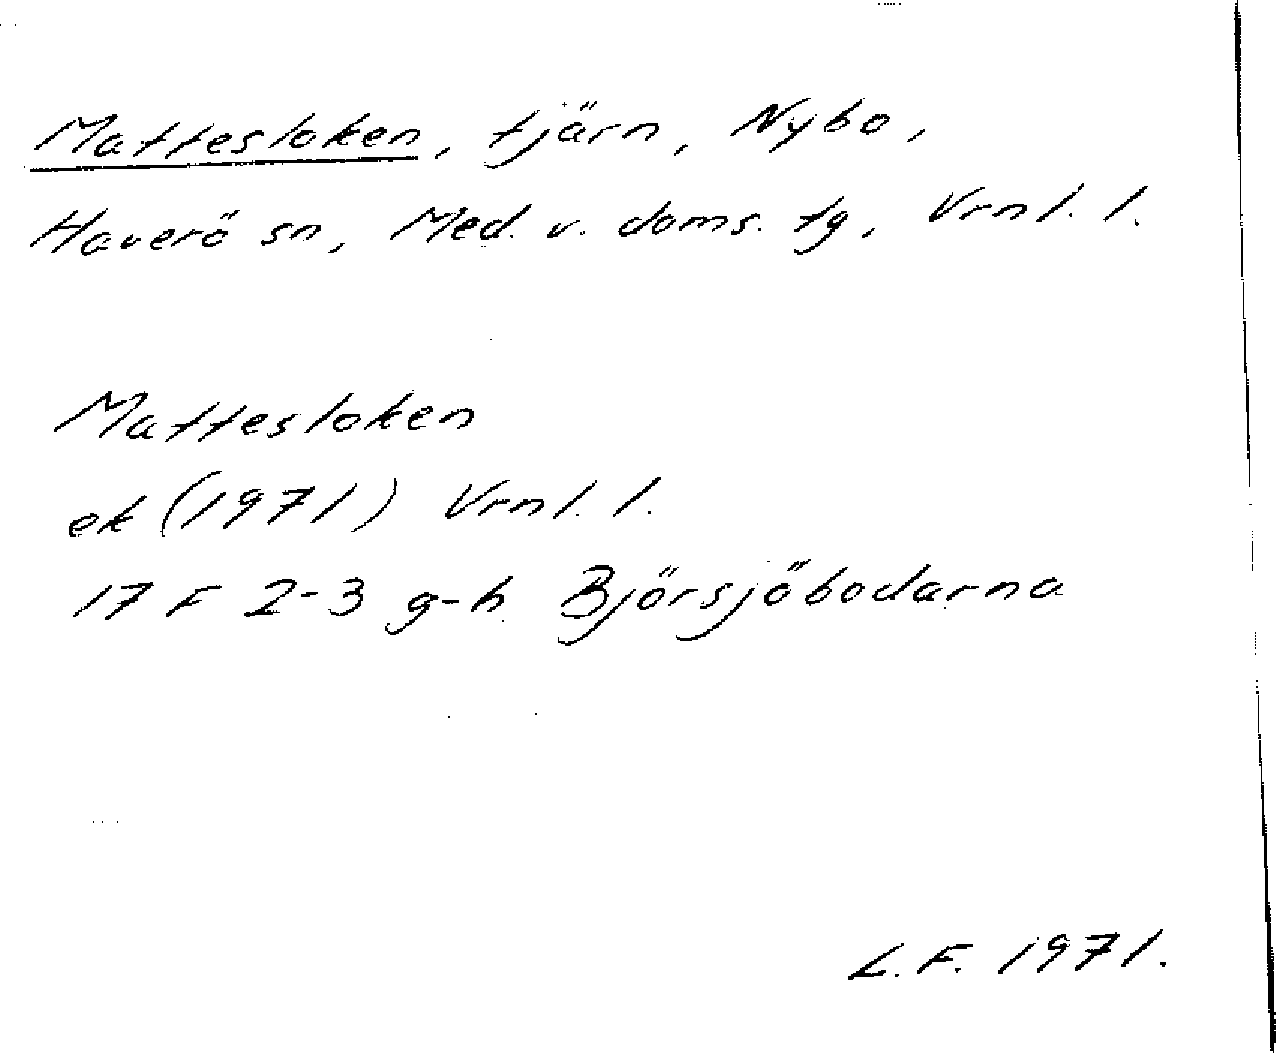 Mattesloken, tjärn, Nybo,
Haverö sn, Med. v. doms. tg, Vrnl. l.
Mattesloken
ek (1971) Vrnl. l.
17 F 2-3 g-h Björsjöbodarna
L.F. 1971.